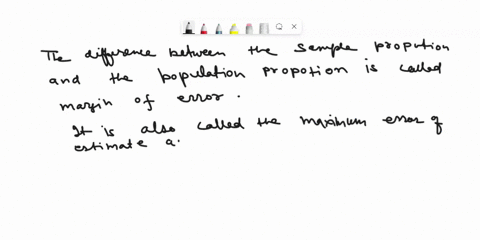 The difference between the sample propution
and the population propotion is called
margin of error.
It is also called the maximum error of
estimate a.